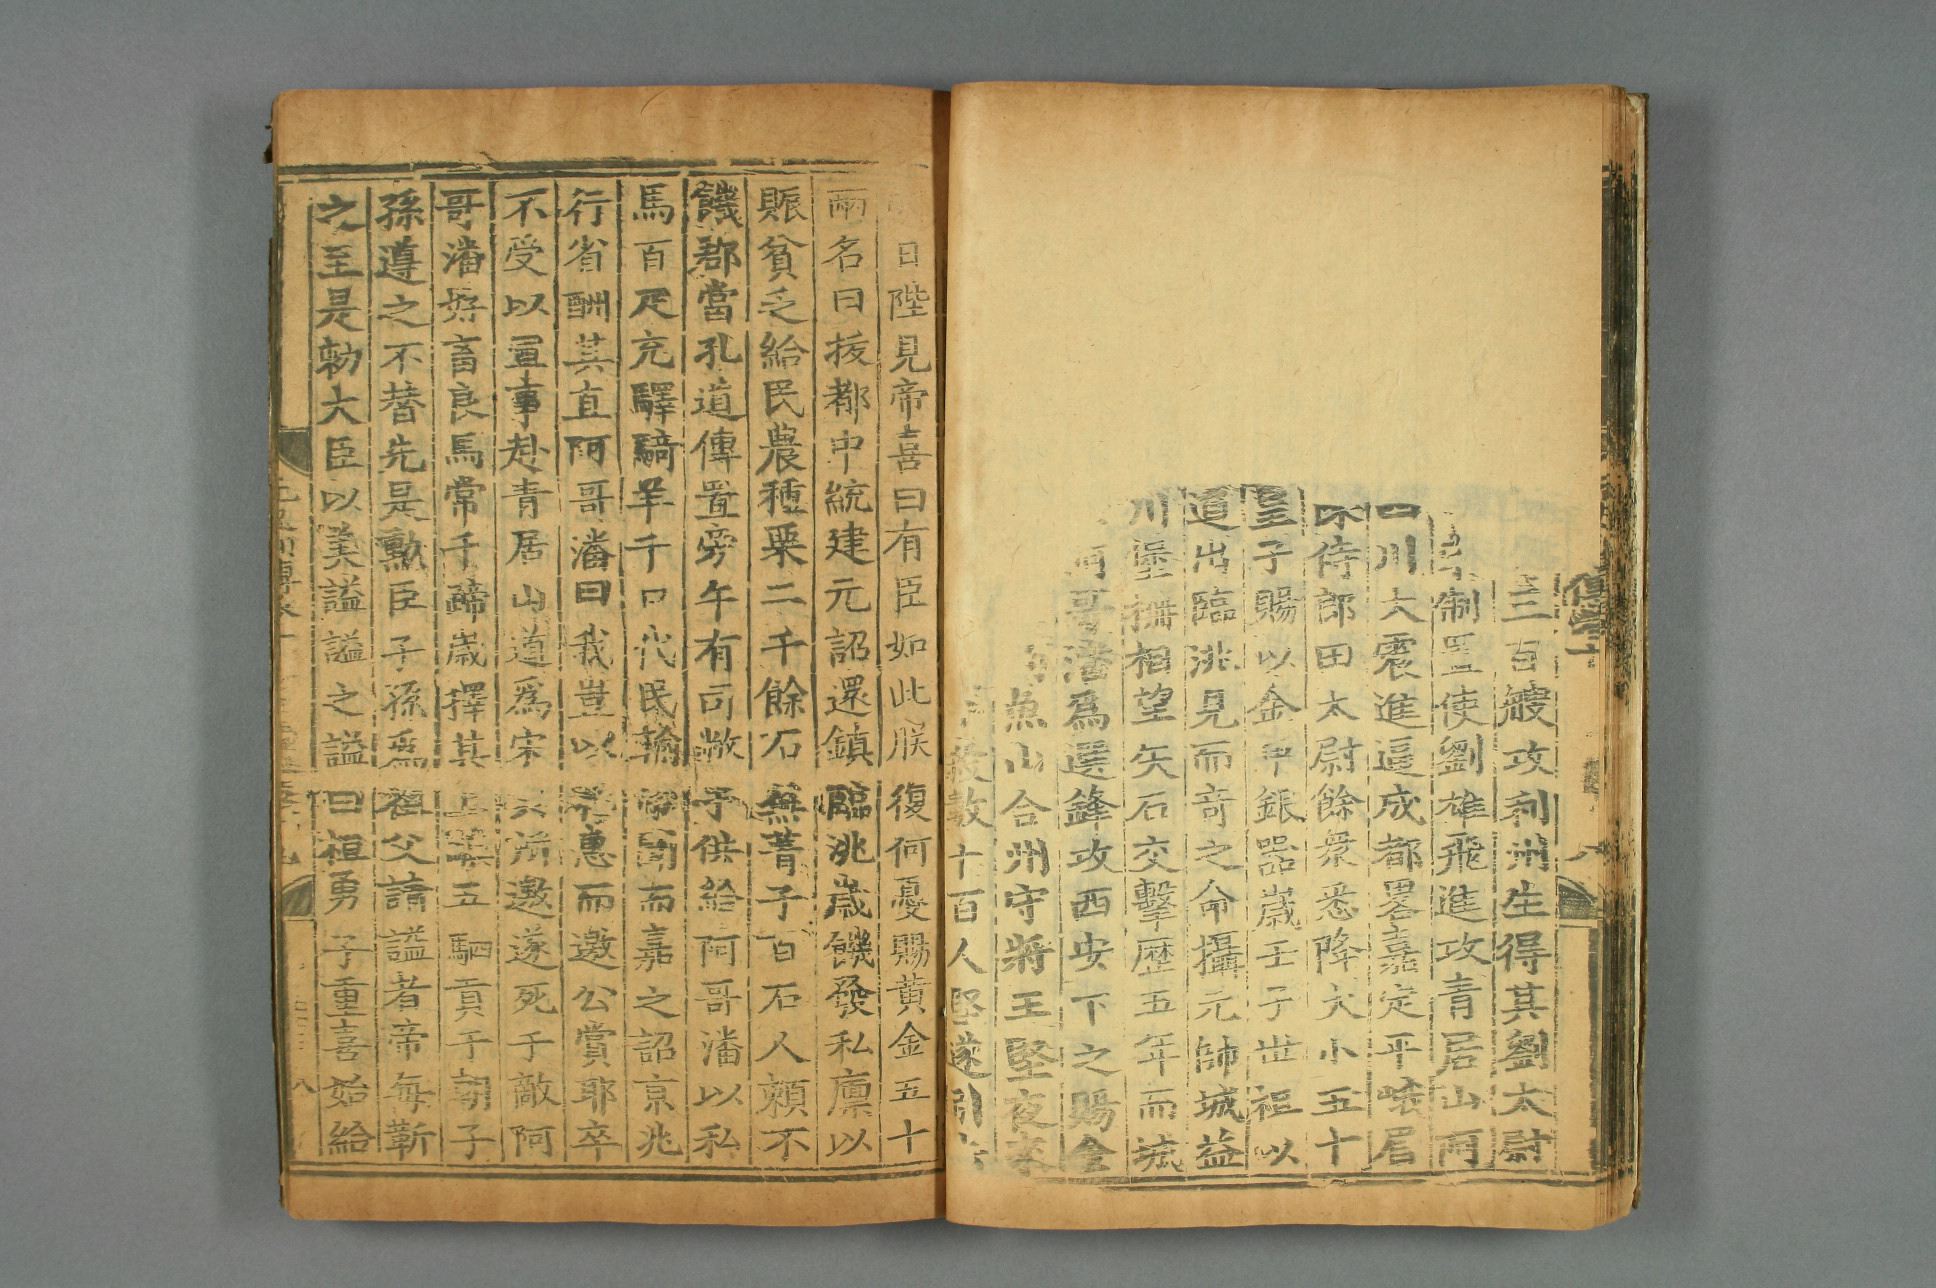 三百艘攻利州生得其劉太尉
制置使劉雄飛進攻青居山兩
四川大震進逼成都畧嘉定平峨眉
侍郎田太尉餘衆悉降大小五十
皇子賜以金甲銀器歲壬子世祖以
道出臨洮見而奇之命攝元帥城益
川堡柵相望矢石交擊歷五年而城
阿哥潘爲選鋒攻西安下之賜金
魚山合州守將王堅夜來
殺數十百人堅遂引
日陛見帝喜曰有臣如此朕復何憂賜黄金五十
兩名曰拔都中統建元詔還鎮臨洮歲饑發私廪以
賑貧乏給民農種粟二千餘石蕪菁子百石人賴不
饑郡當孔道傳置旁午有司敝于供給阿哥潘以私
馬百疋充驛騎羊千口代民輸帝聞而嘉之詔京兆
行省酬其直阿哥潘曰我豈以私惠而邀公賞耶卒
不受以軍事赴青居山道爲宋兵所邀遂死于敵阿
哥潘好畜良馬常千蹄歲擇其上駟五駟貢于朝子
孫遵之不替先是勳臣子孫爲祖父請謚者帝每靳
之至是勑大臣以美謚謚之謚曰桓勇子重喜始給